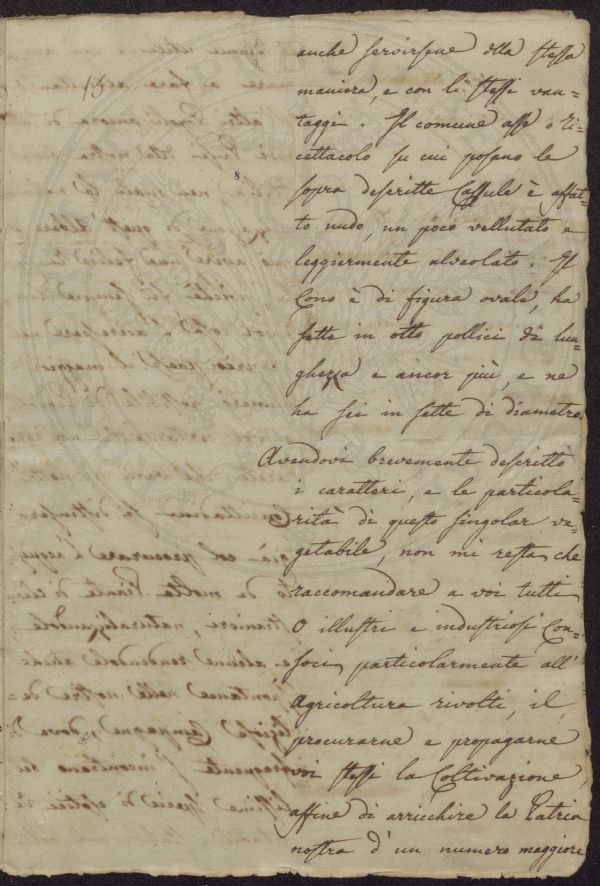 15
8
anche servirsene della stessa
maniera, e con li stessi van-
taggi. Il comune asse o ri-
cettacolo su cui posano le
sopra descritte Cassule è affat-
to nudo, un poco vellutato e
leggiermente alveolato. Il
Cono è di figura ovale, ha
sette in otto pollici di lun-
ghezza e ancor più, e ne
ha sei in sette di diametro.
Avendovi brevemente descritto
i caratteri, e le particola-
rità di questo singolar ve-
getabile, non mi resta che
raccomandare a voi tutti
o illustri e industriosi Con-
soci, particolarmente all'
Agricoltura rivolti, il
procurarne e propagarne
voi stessi la Coltivazione,
affine di arricchire la Patria
nostra d'un numero maggiore